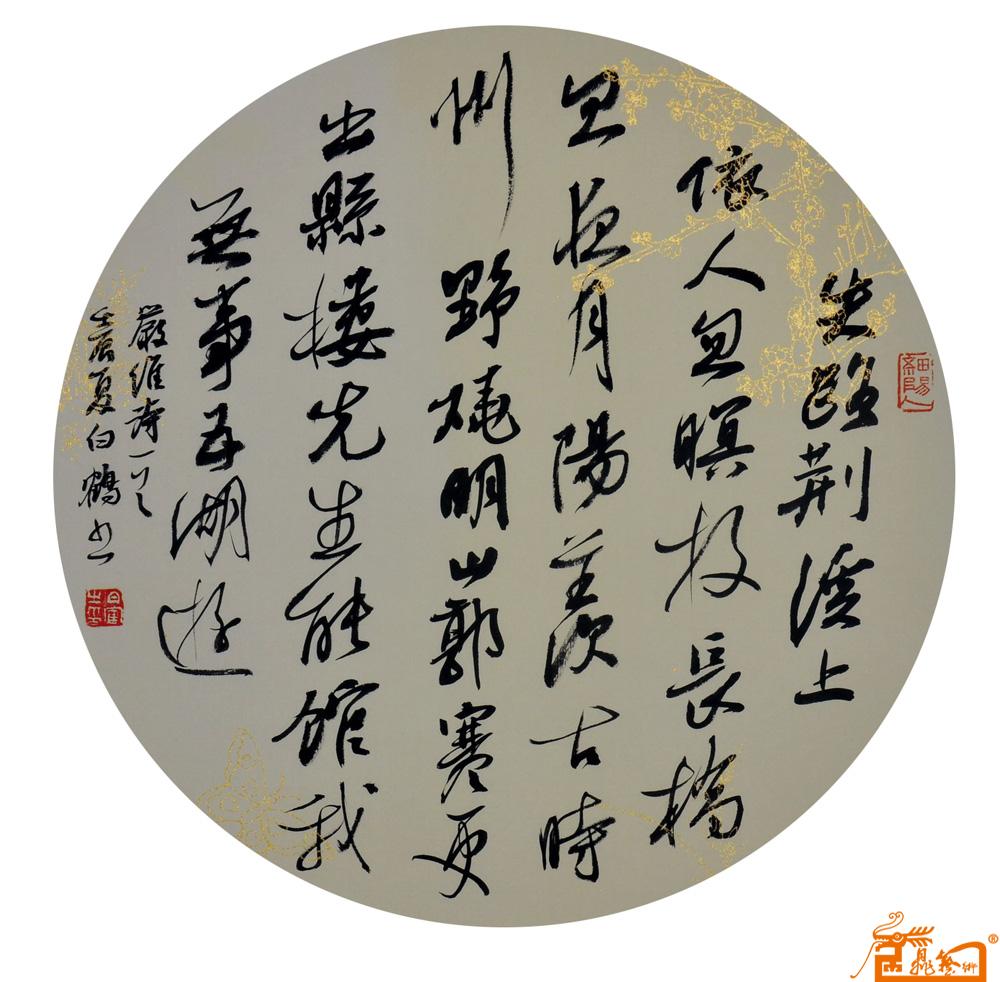 失路荆溪上
依人忽暝投長橋
忽夜月陽羨古時
州野燒明山郭寒更
出縣樓先生能館我
無事五湖遊
嚴維詩一首
壬辰夏白鶴書
細陽人